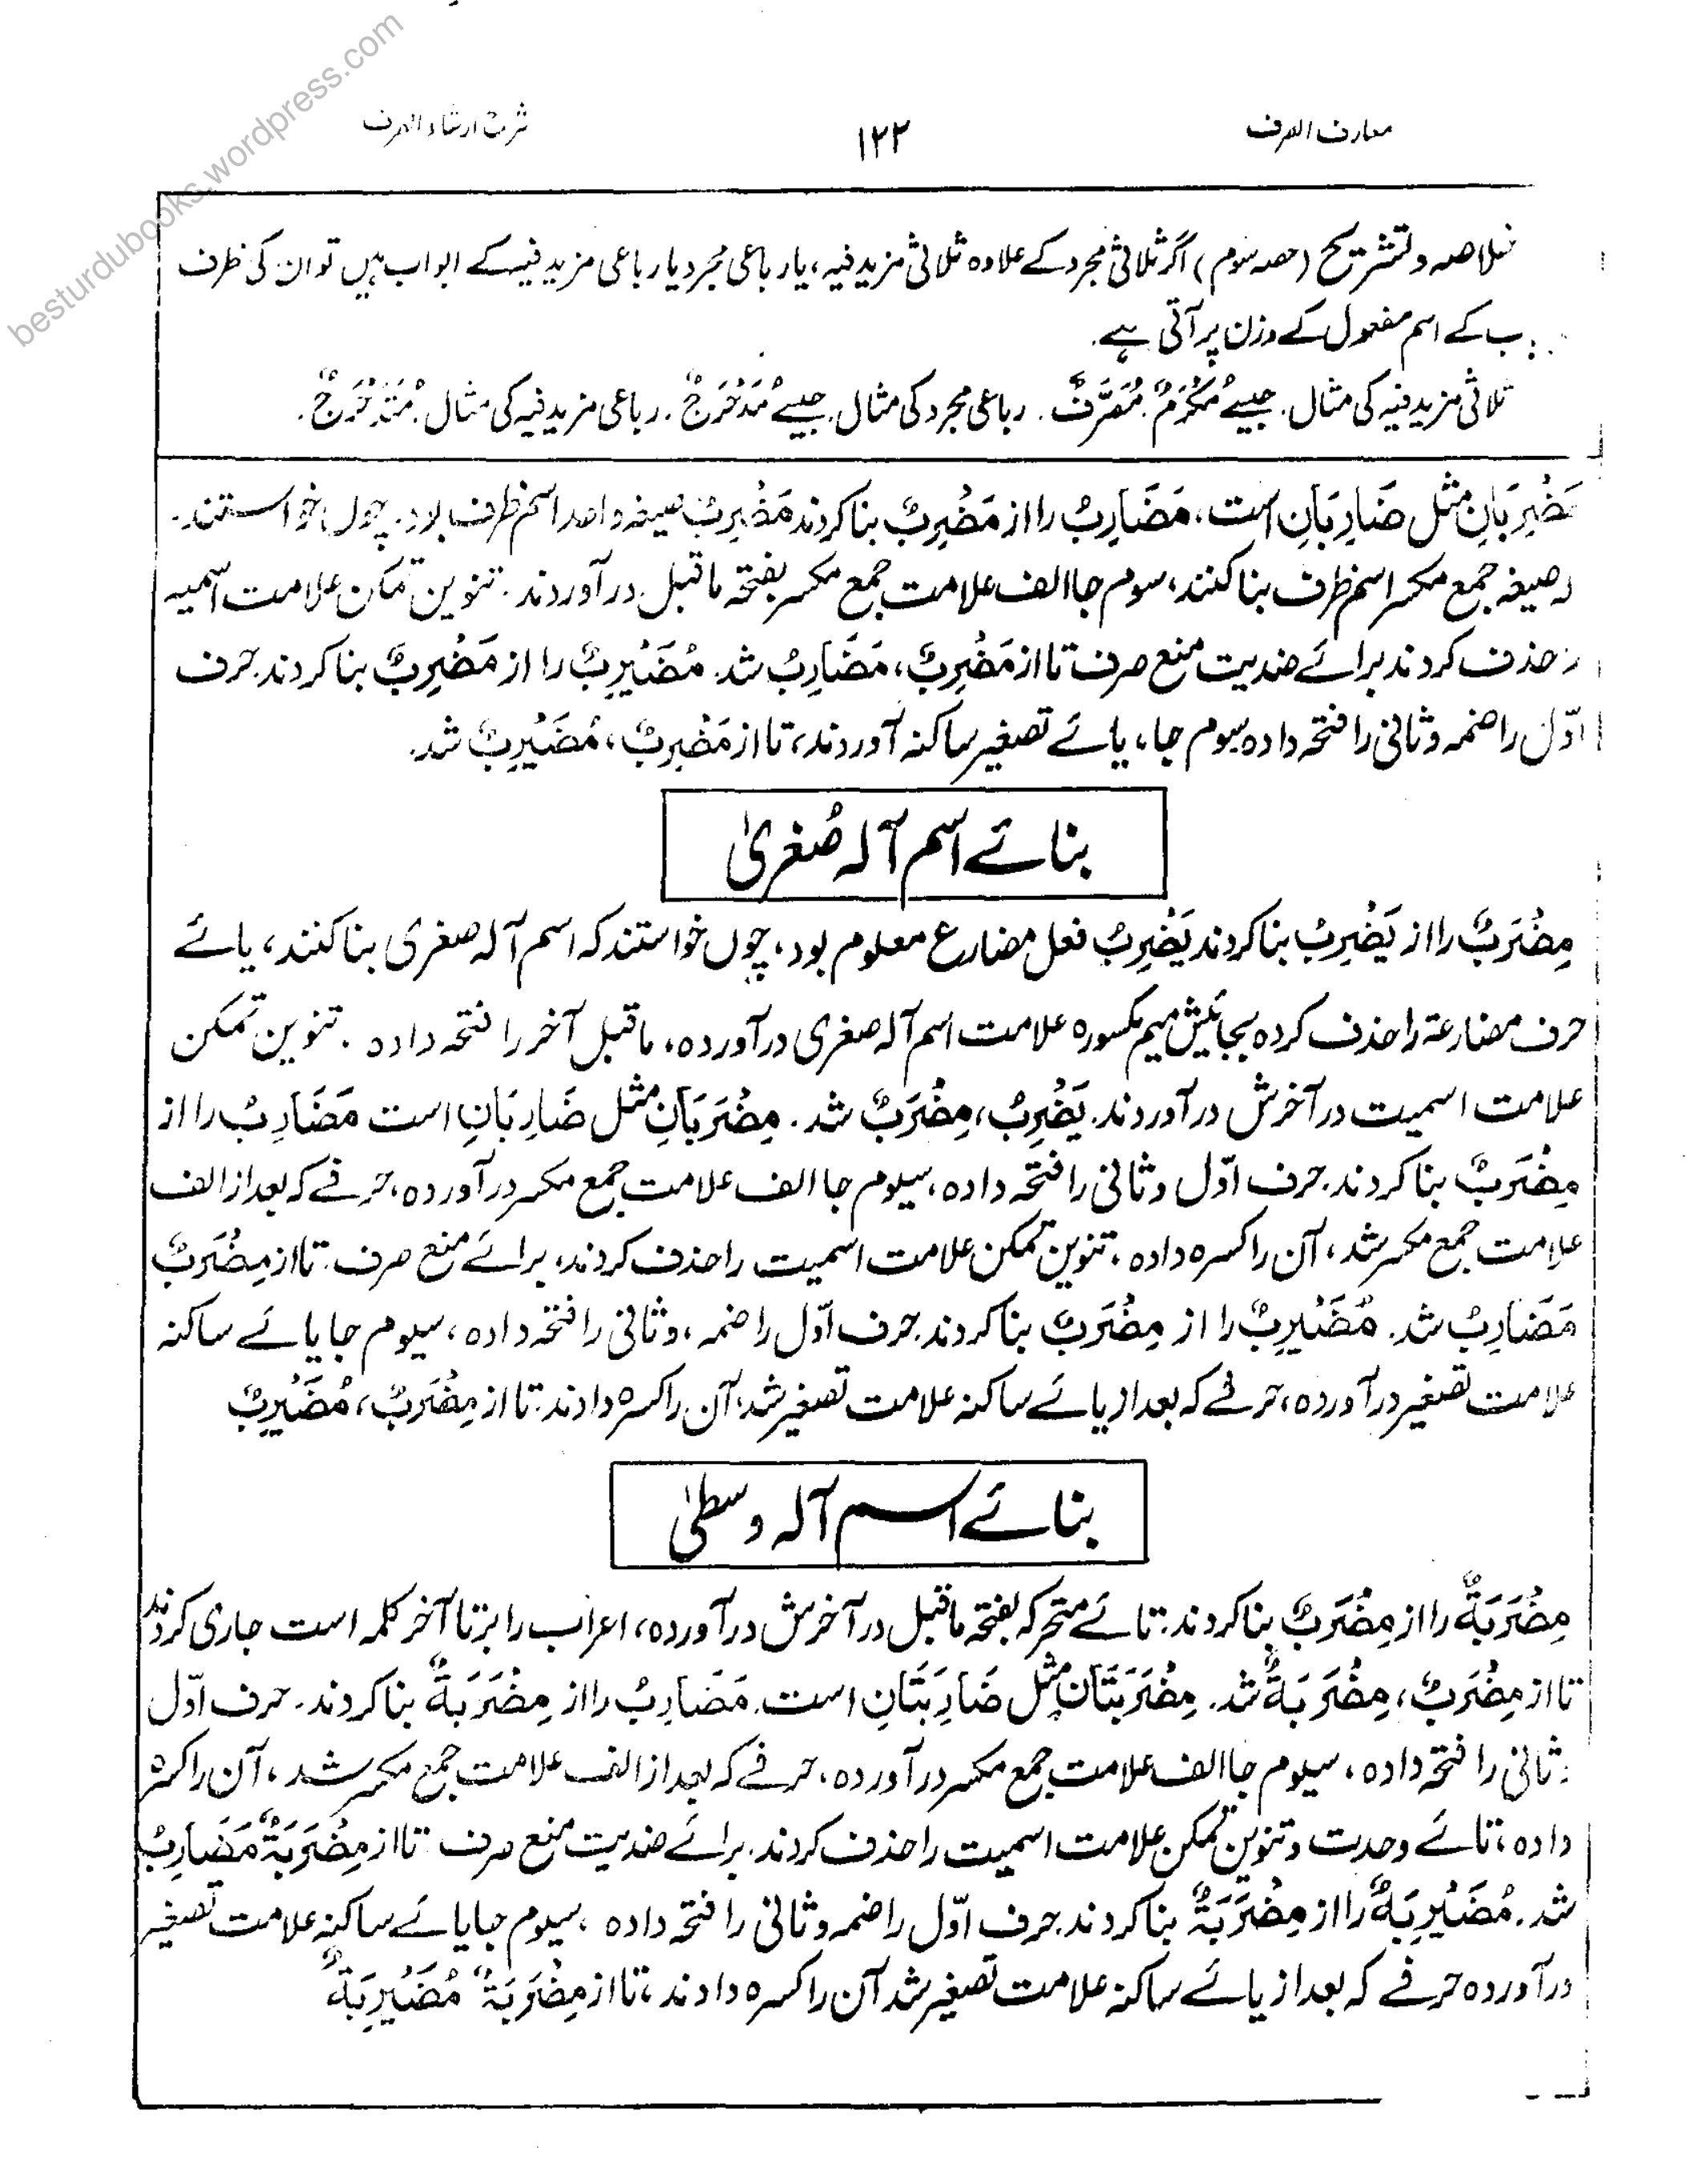 besturdubooks.wordpress.com
معارف الصرف
۱۲۲
شرح ارشاد الصرف
خلاصہ وتشریح (حصہ سوم) اگر ثلاثی مجرد کے علاوہ ثلاثی مزید فیہ، یا رباعی مجرد یا رباعی مزید فیہ کے ابواب ہیں تو ان کی ظرف
ب کے اسم مفعول کے وزن پر آتی ہے۔
ثلاثی مزید فیہ کی مثال. جیسے مُكْرَمٌ. مُصَرَّفٌ. رباعی مجرد کی مثال. جیسے مُدَحْرَجٌ. رباعی مزید فیہ کی مثال. مُتَدَحْرَجٌ.
مَضْرِبَانِ مثل ضَارِبَانِ است، مَضَارِبُ را از مَضْرِبٌ بنا کردند مَضْرِبٌ صیغہ واحد اسم ظرف بود. چوں خواستند.
صیغہ جمع مکسر اسم ظرف بنا کنند، سوم جا الف علامت جمع مکسر بفتحہ ماقبل در آوردند. تنوین تمکن علامت اسمیہ
حذف کردند برائے ضدیت منع صرف تا از مَضْرِبٌ، مَضَارِبُ شد. مُضَيْرِبٌ را از مَضْرِبٌ بنا کردند. حرف
اوّل را ضمہ و ثانی را فتحہ دادہ سوم جا، یائے تصغیر ساکنہ آوردند، تا از مَضْرِبٌ، مُضَيْرِبٌ شد.
بنائے اسم آلہ صُغریٰ
مِضْرَبٌ را از یَضْرِبُ بنا کردند یَضْرِبُ فعل مضارع معلوم بود، چوں خواستند کہ اسم آلہ صغری بنا کنند، یائے
حرف مضارعۃ را حذف کردہ بجائیش میم مکسورہ علامت اسم آلہ صغری در آوردہ، ماقبل آخر را فتحہ دادہ. تنوین تمکن
علامت اسمیت در آخرش در آوردند. یَضْرِبُ، مِضْرَبٌ شد. مِضْرَبَانِ مثل ضَارِبَانِ است مَضَارِبُ را از
مِضْرَبٌ بنا کردند. حرف اوّل و ثانی را فتحہ دادہ، سیوم جا الف علامت جمع مکسر در آوردہ، حرفے کہ بعد از الف
علامت جمع مکسر شد، آن را کسرہ دادہ، تنوین تمکن علامت اسمیت را حذف کردند، برائے منع صرف. تا از مِضْرَبٌ
مَضَارِبُ شد. مُضَيْرِبٌ را از مِضْرَبٌ بنا کردند. حرف اوّل را ضمہ، و ثانی را فتحہ دادہ، سیوم جا یائے ساکنہ
علامت تصغیر در آوردہ، حرفے کہ بعد از یائے ساکنہ علامت تصغیر شد، آن را کسرہ دادند. تا از مِضْرَبٌ، مُضَيْرِبٌ
بنائے اسم آلہ وسطیٰ
مِضْرَبَةٌ را از مِضْرَبٌ بنا کردند. تائے متحرکہ بفتحہ ماقبل در آخرش در آوردہ، اعراب را بر تا آخر کلمہ است جاری کردند
تا از مِضْرَبٌ، مِضْرَبَةٌ شد. مِضْرَبَتَانِ مثل ضَارِبَتَانِ است. مَضَارِبُ را از مِضْرَبَةٌ بنا کردند. حرف اوّل
ثانی را فتحہ دادہ، سیوم جا الف علامت جمع مکسر در آوردہ، حرفے کہ بعد از الف علامت جمع مکسر شد، آن را کسرہ
دادہ، تائے وحدت و تنوین تمکن علامت اسمیت را حذف کردند. برائے ضدیت منع صرف تا از مِضْرَبَةٌ مَضَارِبُ
شد. مُضَيْرِبَةٌ را از مِضْرَبَةٌ بنا کردند. حرف اوّل را ضمہ و ثانی را فتحہ دادہ، سیوم جا یائے ساکنہ علامت تصغیر
در آوردہ حرفے کہ بعد از یائے ساکنہ علامت تصغیر شد آن را کسرہ دادند، تا از مِضْرَبَةٌ مُضَيْرِبَةٌ